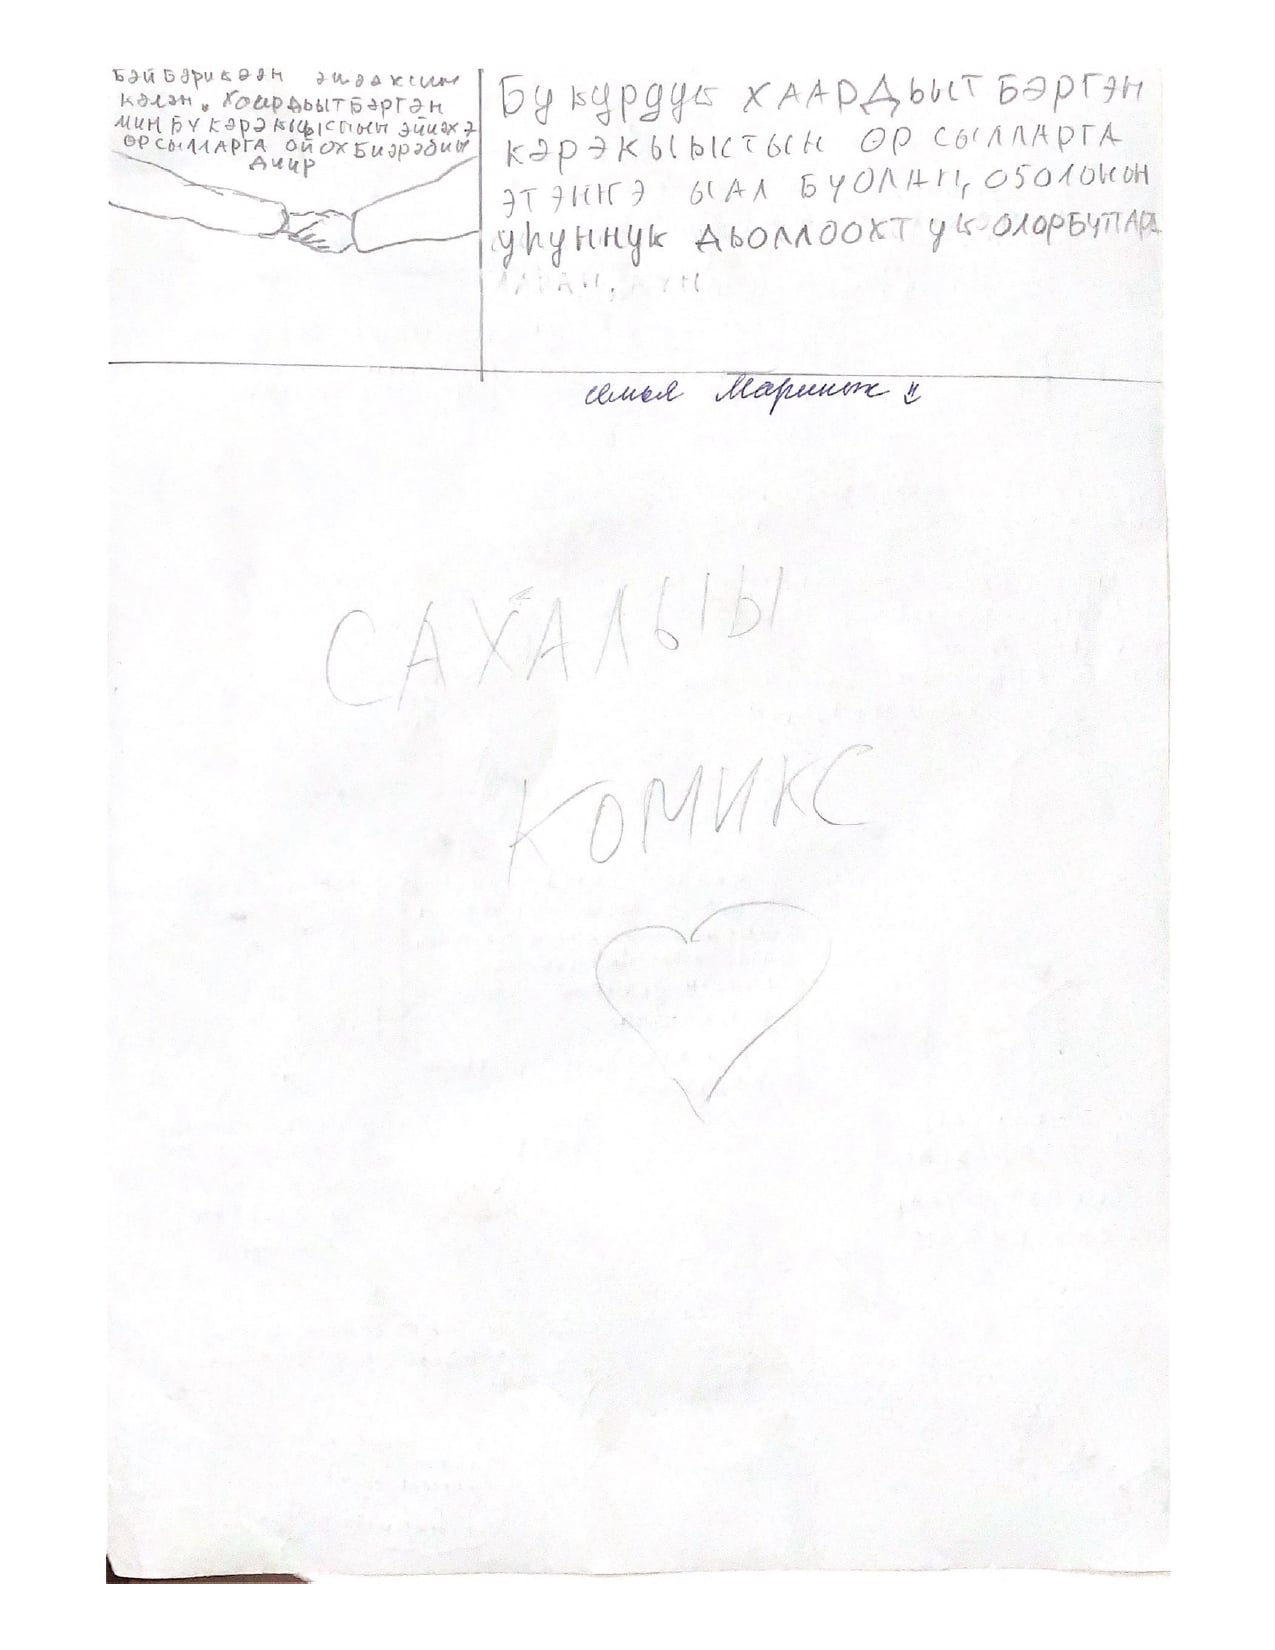 БЭЙБЭРИКЭЭН ЭМЭЭХСИН
КЭЛЭН, ХААРДЬЫТБЭРГЭН
МИН БУ КЭРЭ КЫЫСПЫН ЭЙИЭХЭ
ӨР СЫЛЛАРГА ОЙОХ БИЭРЭБИН
ДИИР
БУ КУРДУК ХААРДЬЫТ БЭРГЭН
КЭРЭ КЫЫСТЫН ӨР СЫЛЛАРГА
ЭТЭҤҤЭ ЫАЛ БУОЛАН, ОҔОЛОНОН
УҺУННУК ДЬОЛЛООХТУК ОЛОРБУТТАРА
семья Маринок
САХАЛЫЫ
КОМИКС